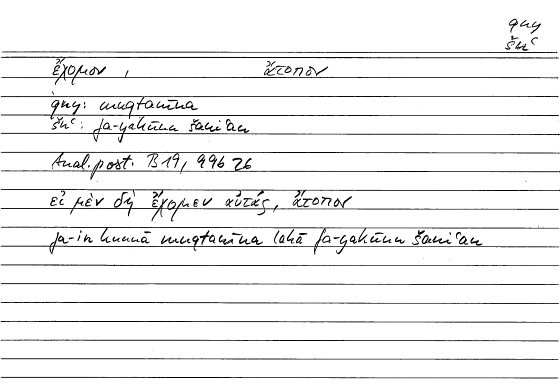 qny
šnʿ
ἔχομεν, ἄτοπον
qny: muqtanīna
šnʿ: fa-yakūnu šaniʿan
Anal. post. B 19, 99b 26
εἰ μὲν δὴ ἔχομεν αὐτάς, ἄτοπον
fa-in kunnā muqtanīna lahā fa-yakūnu šaniʿan